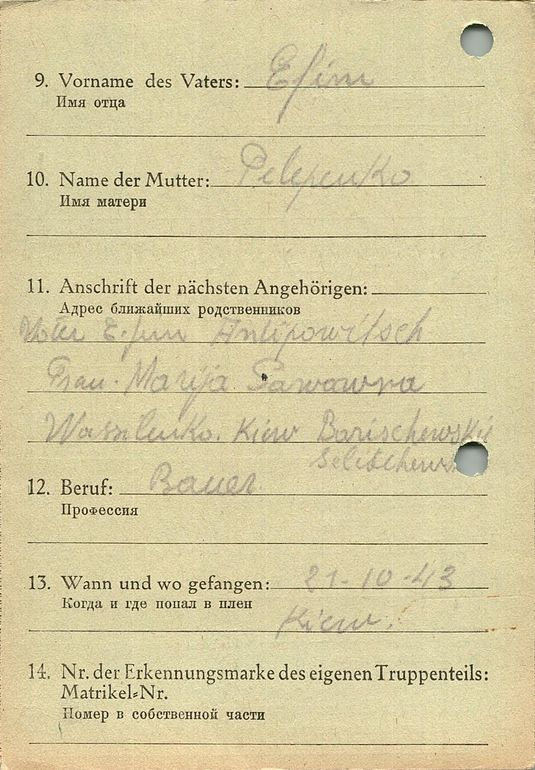 9. Vorname des Vaters: Efim
Имя отца
10. Name der Mutter: Pelepenko
Имя матери
11. Anschrift der nächsten Angehörigen:
Адрес ближайших родственников
Efim Antipowitsch
Frau. Marija
Wassilenko. Kiew Barischewskii
12. Beruf: Bauer
Профессия
13. Wann und wo gefangen: 21-10-43
Когда и где попал в плен
Kiew.
14. Nr. der Erkennungsmarke des eigenen Truppenteils:
Matrikel-Nr.
Номер в собственной части